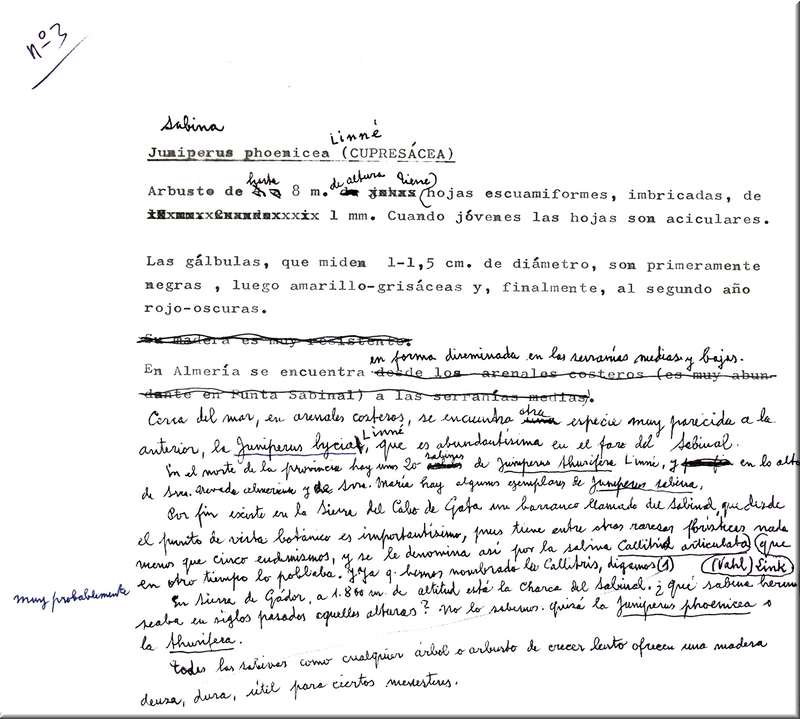 nº 3
Sabina
Linné
Juniperus phoenicea (CUPRESÁCEA)
hasta de altura Tiene)
Arbusto de 8 m. (hojas escuamiformes, imbricadas, de
1 mm. Cuando jóvenes las hojas son aciculares.
Las gálbulas, que miden 1-1,5 cm. de diámetro, son primeramente
negras , luego amarillo-grisáceas y, finalmente, al segundo año
rojo-oscuras.
Su madera es muy resistente.
en forma diseminada en las serranías medias y bajas.
En Almería se encuentra desde los arenales costeros (es muy abun-
dante en Punta Sabinal) a las serranías medias.
Cerca del mar, en arenales costeros, se encuentra otra especie muy parecida a la
Linné
anterior, la Juniperus lycia, que es abundantísima en el faro del Sabinal.
En el norte de la provincia hay unos 20 sabinas de Juniperus thurifera Linné, y en lo alto
de Sra. Nevada almeriense y de Sra. María hay algunos ejemplares de Juniperus sabina.
Por fin existe en la Sierra del Cabo de Gata un barranco llamado del Sabinal, que desde
el punto de vista botánico es importantísimo, pues tiene entre otras rarezas florísticas nada
menos que cinco endemismos, y se le denomina así por la sabina Callitris articulata (que
en otro tiempo lo poblaba. Y ya q. hemos nombrado la Callitris, digamos (1) (Vahl) Link
muy probablemente
En Sierra de Gádor, a 1.800 m. de altitud está la Charca del Sabinal. ¿qué sabina hermo
seaba en siglos pasados aquellas alturas? No lo sabemos. quizá la Juniperus phoenicea o
la thurifera.
todas las sabinas como cualquier árbol o arbusto de crecer lento ofrecen una madera
densa, dura, útil para ciertos menesteres.